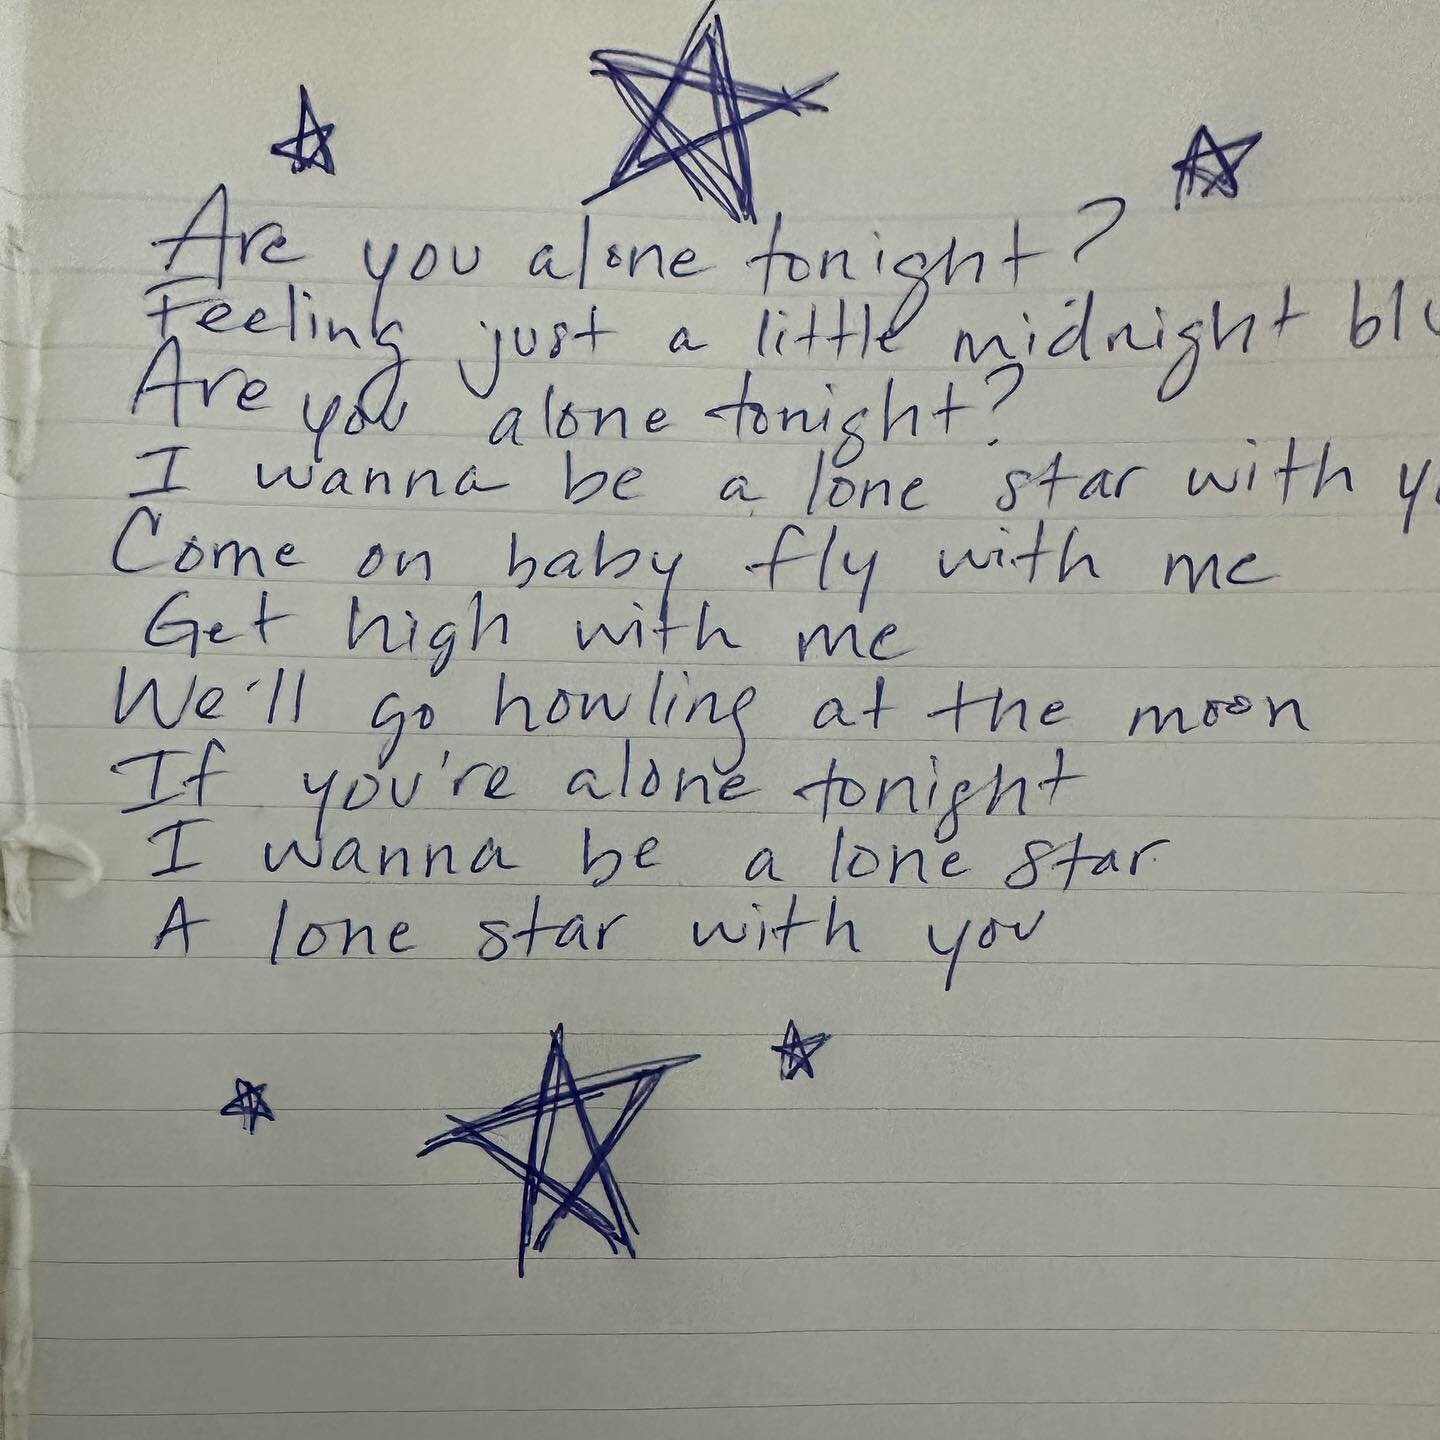 Are you alone tonight?
Feeling just a little midnight blu
Are you alone tonight?
I wanna be a lone star with yo
Come on baby fly with me
Get high with me
We'll go howling at the moon
If you're alone tonight
I wanna be a lone star
A lone star with you